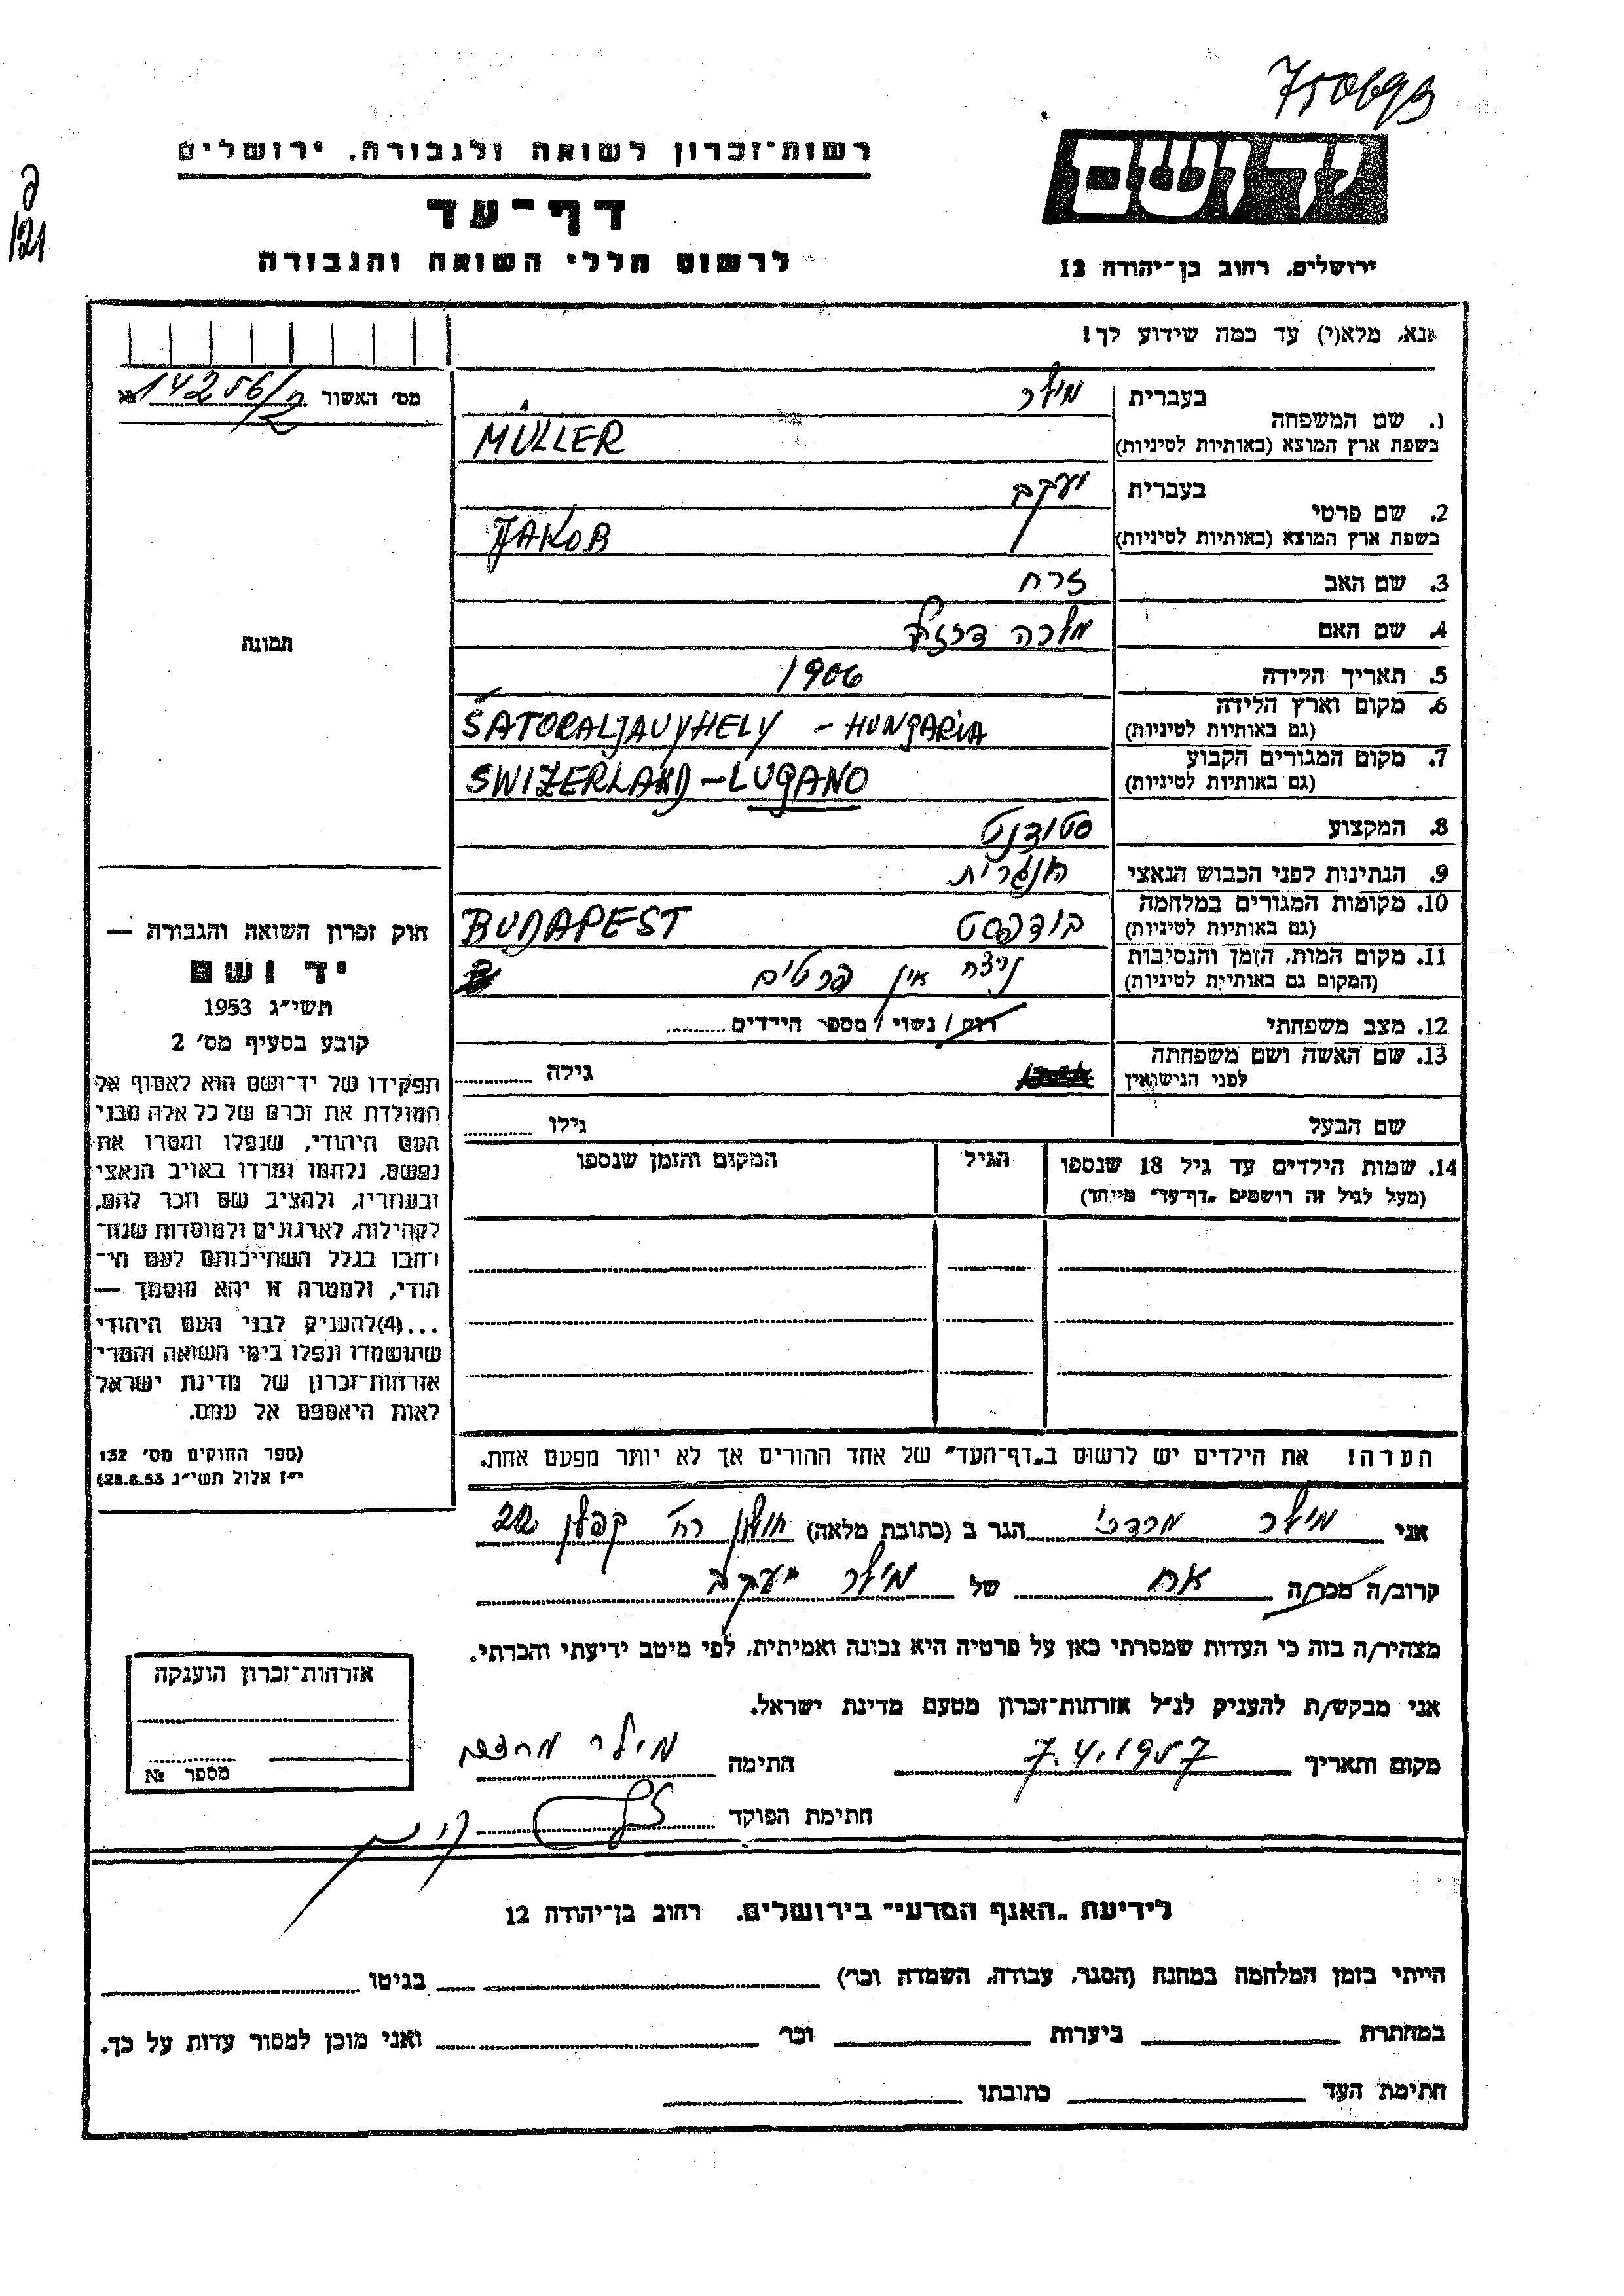 750699
ג
121
יד ושם
רשות־זכרון לשואה ולגבורה, ירושלים
דף־עד
לרשום חללי השואה והגבורה
ירושלים, רחוב בן־יהודה 12
אנא, מלא(י) עד כמה שידוע לך!
מס׳ האשור 14256/2
1. שם המשפחה
בעברית מילר
בשפת ארץ המוצא (באותיות לטיניות) MÜLLER
2. שם פרטי
בעברית יעקב
בשפת ארץ המוצא (באותיות לטיניות) JAKOB
3. שם האב זרח
4. שם האם מלכה
5. תאריך הלידה 1906
6. מקום וארץ הלידה
(גם באותיות לטיניות) ŠATORALJAUYHELY - HUNGARIA
7. מקום המגורים הקבוע
(גם באותיות לטיניות) SWIZERLAND - LUGANO
8. המקצוע סטודנט
9. הנתינות לפני הכבוש הנאצי הונגרית
10. מקומות המגורים במלחמה
(גם באותיות לטיניות) בודפסט BUDAPEST
11. מקום המות, הזמן והנסיבות
(המקום גם באותיות לטיניות) אין פרטים
12. מצב משפחתי רווק / נשוי / מספר הילדים
13. שם האשה ושם משפחתה
לפני הנישואין גילה
שם הבעל גילו
14. שמות הילדים עד גיל 18 שנספו הגיל המקום והזמן שנספו
(מעל לגיל זה רושמים „דף־עד״ מיוחד)
תמונה
חוק זכרון השואה והגבורה —
יד ושם
תשי״ג 1953
קובע בסעיף מס׳ 2
תפקידו של יד־ושם הוא לאסוף אל
המולדת את זכרם של כל אלה מבני
העם היהודי, שנפלו ומסרו את
נפשם, נלחמו ומרדו באויב הנאצי
ובעוזריו, ולהציב שם וזכר להם,
לקהילות, לארגונים ולמוסדות שנח־
רבו בגלל השתייכותם לעם הי־
הודי, ולמטרה זו יהא מוסמך —
...(4)להעניק לבני העם היהודי
שהושמדו ונפלו בימי השואה והמרי
אזרחות־זכרון של מדינת ישראל
לאות היאספם אל עמם.
(ספר החוקים מס׳ 132
י״ז אלול תשי״ג 28.8.53)
הערה! את הילדים יש לרשום ב„דף־העד״ של אחד ההורים אך לא יותר מפעם אחת.
אני מילר מרדכי הגר ב (כתובת מלאה) חולון רח׳ קפלן 22
קרוב/ה מכר/ה אח של מילר יעקב
מצהיר/ה בזה כי העדות שמסרתי כאן על פרטיה היא נכונה ואמיתית, לפי מיטב ידיעתי והכרתי.
אני מבקש/ת להעניק לנ״ל אזרחות־זכרון מטעם מדינת ישראל.
מקום ותאריך 7.4.1957 חתימה מילר מרדכי
חתימת הפוקד
אזרחות־זכרון הוענקה
מספר №
לידיעת „האגף המדעי״ בירושלים, רחוב בן־יהודה 12
הייתי בזמן המלחמה במחנה (הסגר, עבודה, השמדה וכו׳) בגיטו
במחתרת ביערות וכו׳ ואני מוכן למסור עדות על כך.
חתימת העד כתובתו